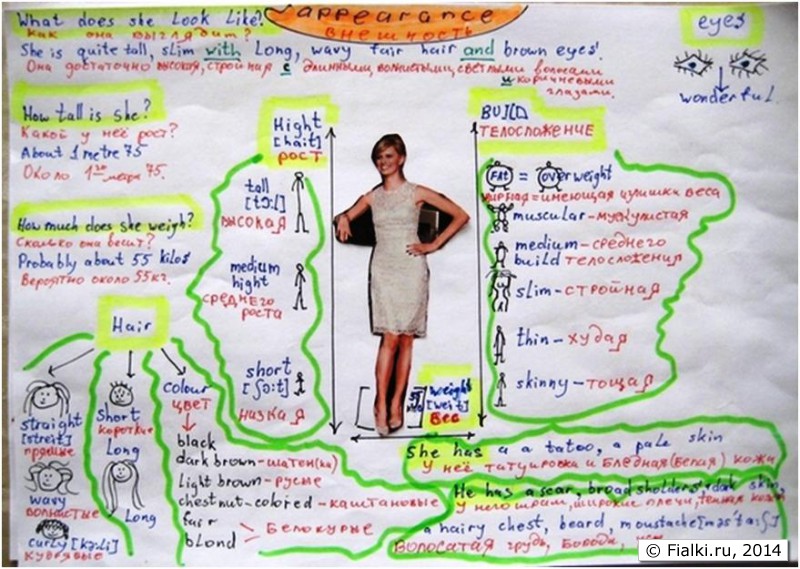 appearance
внешность
What does she Look Like?
Как она выглядит?
She is quite tall, slim with Long, wavy fair hair and brown eyes.
Она достаточно высокая, стройная с длинными, волнистыми, светлыми волосами
и коричневыми
глазами.
eyes
wonderful
How tall is she?
Какой у неё рост?
About 1 metre 75
Около 1го метра 75.
How much does she weigh?
Сколько она весит?
Probably about 55 kilos
Вероятно около 55кг.
Hight
[hait]
рост
tall
[tɔ:l]
высокая
medium
hight
среднего
роста
short
[ʃɔ:t]
низкая
BUILD
телосложение
FAt = OVerweight
жирная=имеющая излишки веса
muscular-мускулистая
medium-среднего
build телосложения
slim-стройная
thin-худая
skinny-тощая
weight
[weit]
вес
Hair
straight
[streit]
прямые
wavy
волнистые
curly [kə:li]
кудрявые
Short
короткие
Long
Long
colour
цвет
black
dark brown-шатен(ка)
light brown-русые
chestnut-colored-каштановые
fair
blond
Белокурые
She has a a tatoo, a pale skin
У неё татуировка и бледная(белая) кожа
He has a scar, broad sholders, dark skin,
У него шрам, широкие плечи, темная кожа
a hairy chest, beard, moustache[məs'ta:ʃ]
Волосатая грудь, борода,
© Fialki.ru, 2014